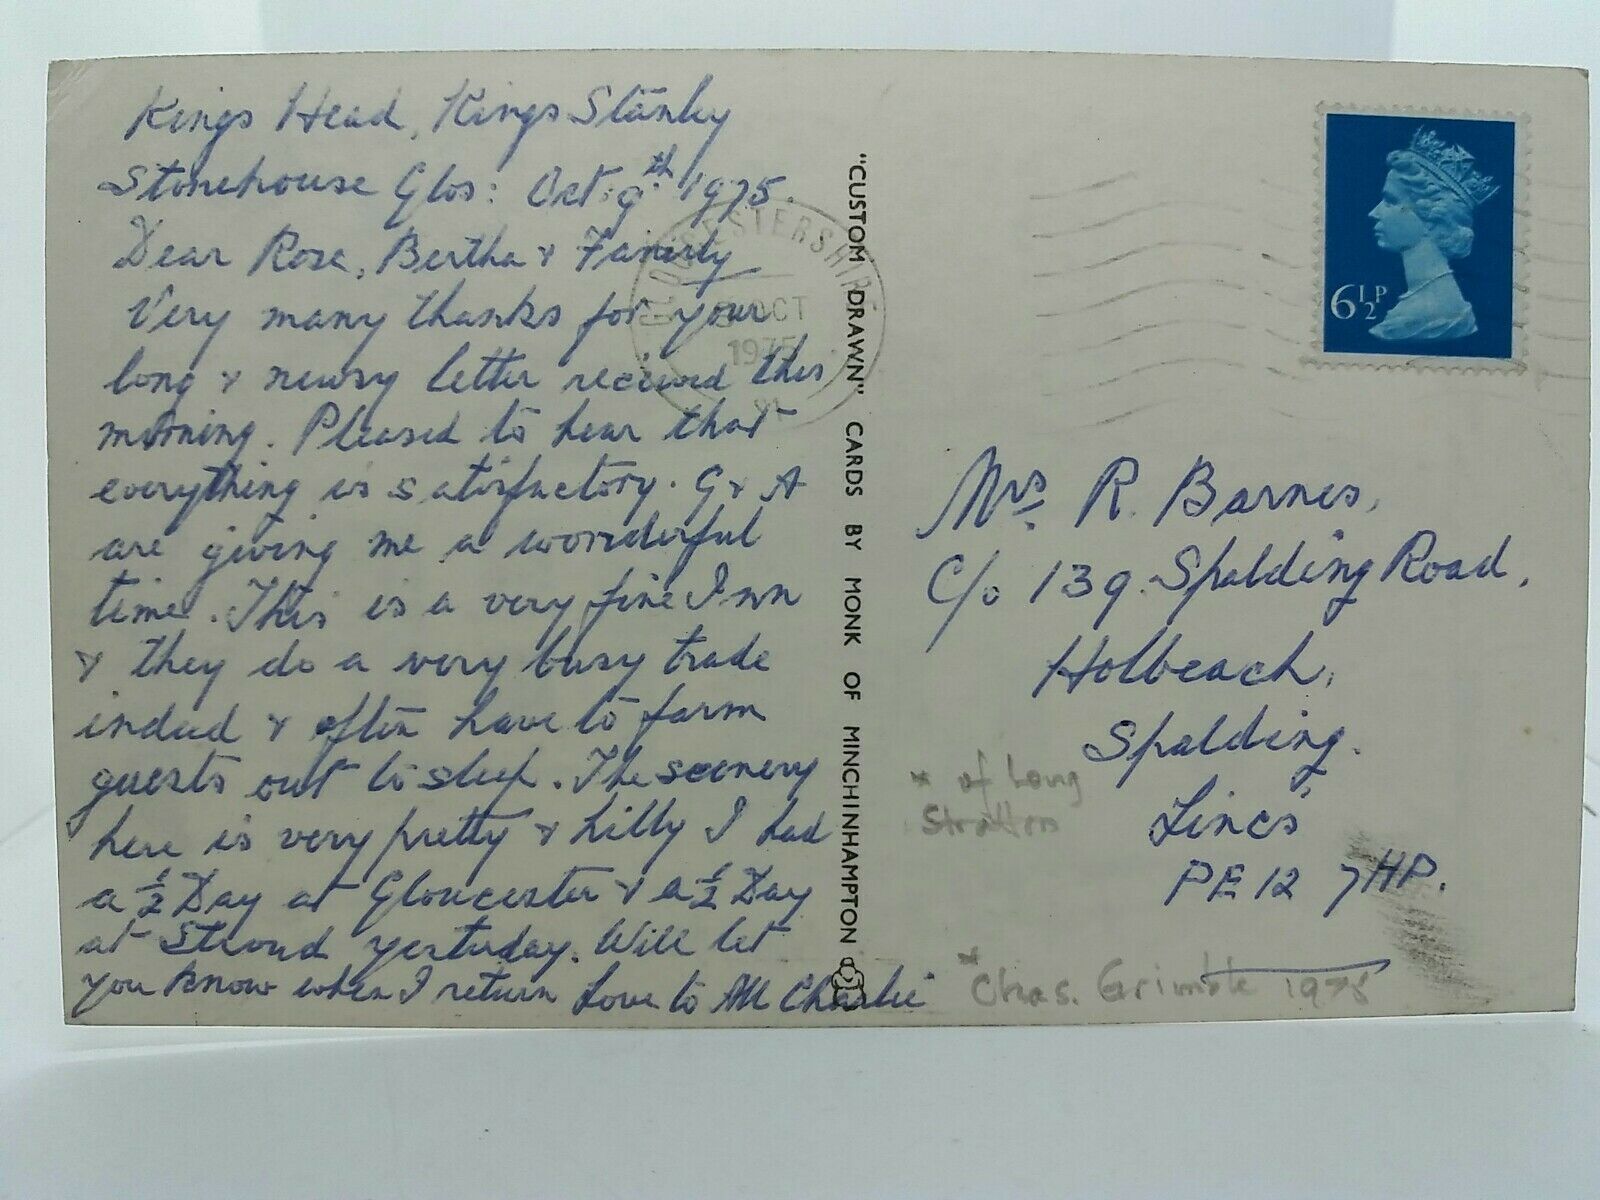 Kings Head, Kings Stanley
Stonehouse Glos: Oct: 9th 1975.
Dear Rose, Bertha & Family
Very many thanks for your
long & newsy letter received this
morning. Pleased to hear that
everything is satisfactory. G & A
are giving me a wonderful
time. This is a very fine Inn
& they do a very busy trade
indeed & often have to farm
guests out to sleep. The scenery
here is very pretty & hilly I had
a ½ Day at Gloucester & a ½ Day
at Stroud yesterday. Will let
you know when I return Love to All Charlie
"CUSTOM DRAWN" CARDS BY MONK OF MINCHINHAMPTON
GLOUCESTERSHIRE
OCT
1975
6½P
Mrs R. Barnes,
C/o 139. Spalding Road,
Holbeach,
Spalding.
Lincs
PE12 7HP.
* of Long
Stratton
* Chas. 1975